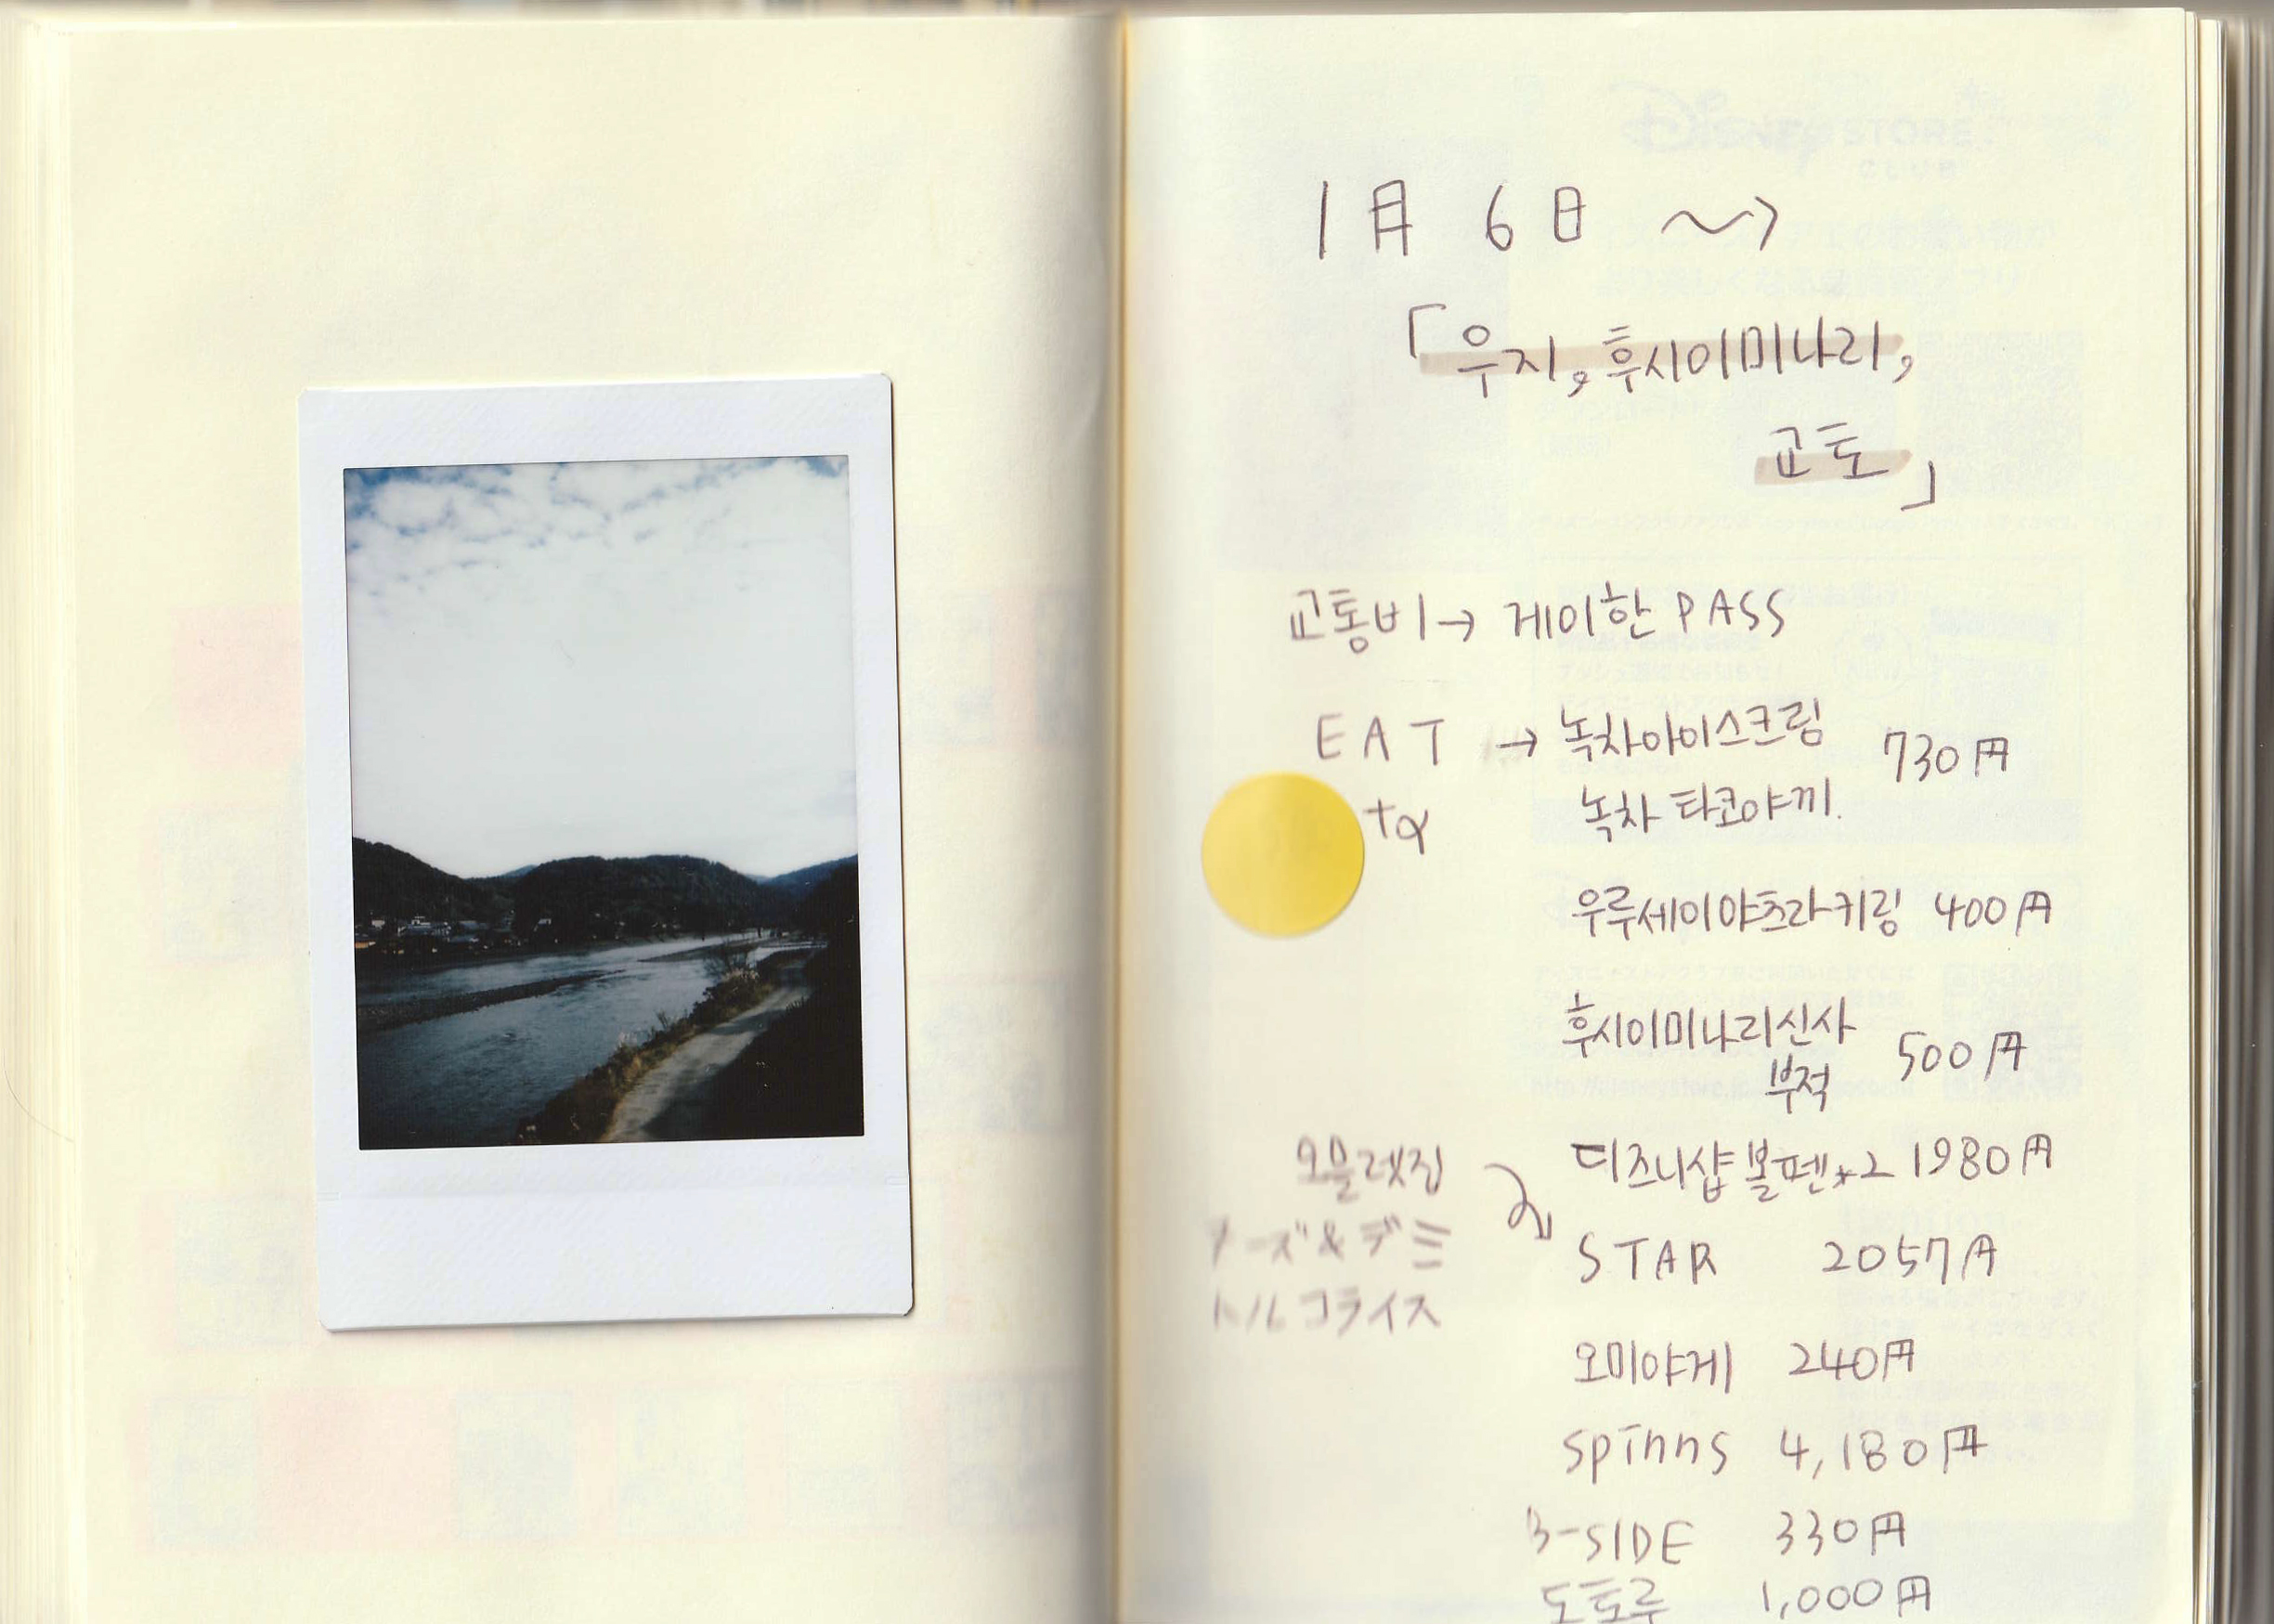 1月 6日 ~>
「우지, 후시이미나리,
교토」
교통비→ 게이한 PASS
EAT → 녹차아이스크림 730円
+α 녹차 타코야끼.
우루세이야츠라키링 400円
후시이미나리신사 500円
부적
디즈니샵볼펜*2 1980円
오믈렛집
STAR 2057円
チーズ&デミ
トルコライス
오미야게 240円
spinns 4,180円
B-SIDE 330円
도토루 1,000円